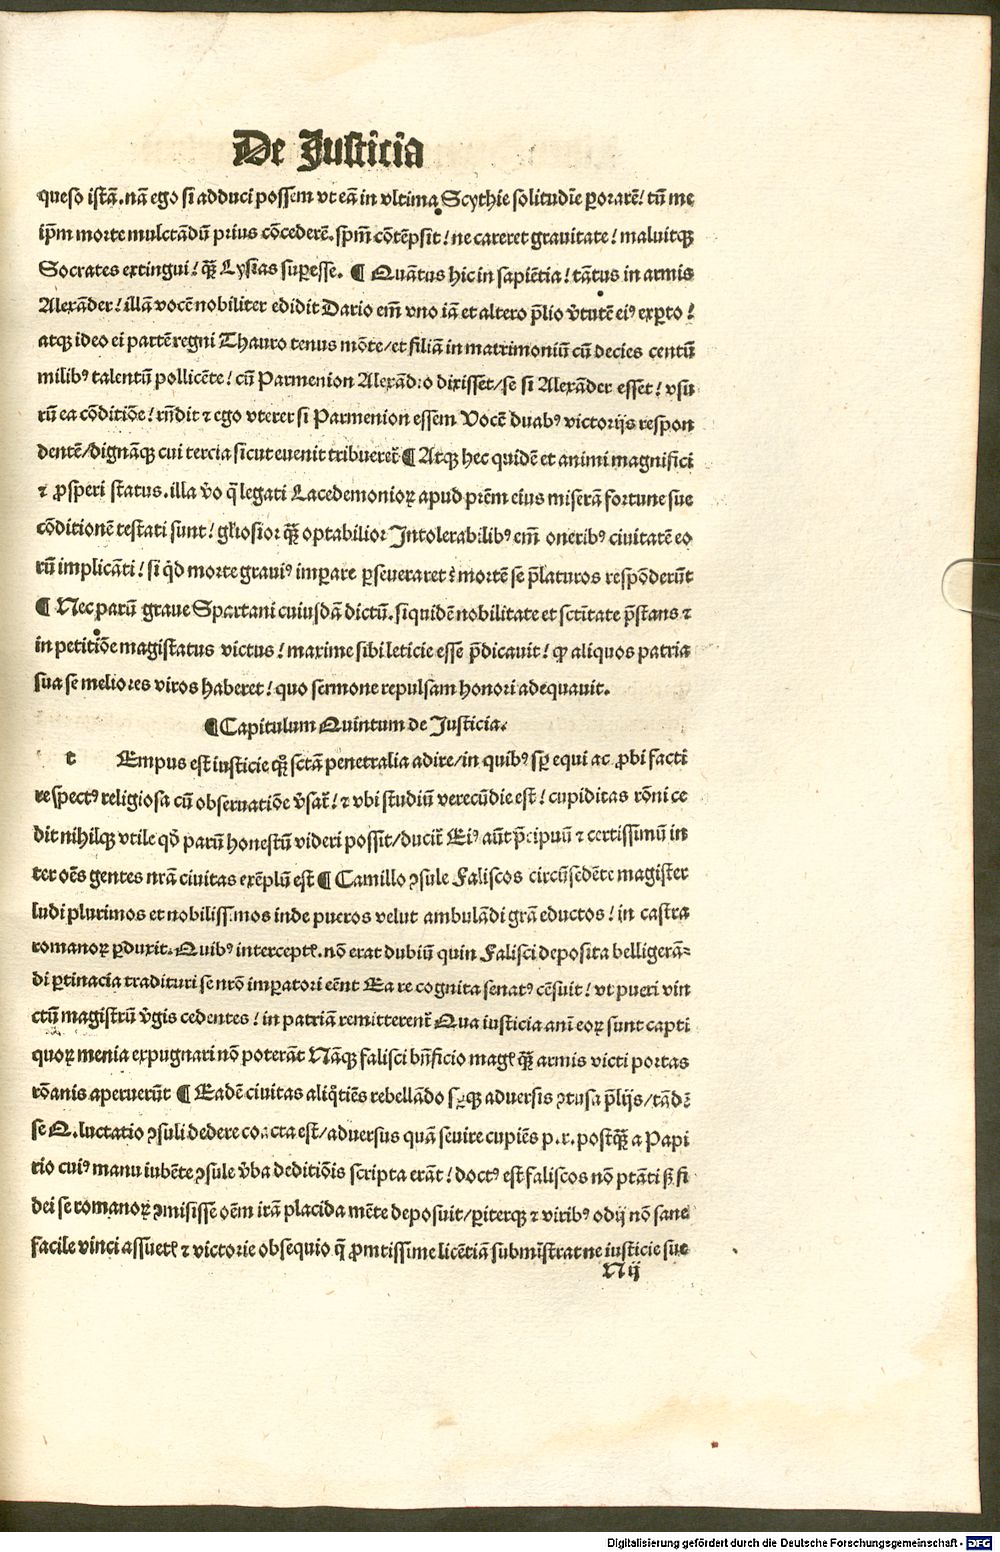 De Justicia
queso istā. nā ego si adduci possem vt eā in vltima Scythie solitudīe ꝑorarē! tū me
ip̄m morte mulctādū prius cōcederē. sp̄m̄ cōtēpsit! ne careret grauitate! maluitqꝫ
Socrates extingui! qꝫ̄ Lysias suꝑesse. ¶ Quātus hic in sapiētia! tātus in armis
Alexāder! illā vocē nobiliter edidit Dario em̄ vno iā et altero p̄lio v̄tutē eiꝰ exꝑto!
atqꝫ ideo ei partē regni Thauro tenus mōte/ et filiā in matrimoniū cū decies centū
milibꝰ talentū pollicēte! cū Parmenion Alexādro dixisset/ se si Alexāder esset! vsu
rū ea cōditiōe! rn̄dit ⁊ ego vterer si Parmenion essem Vocē duabꝰ victorijs respon
dentē/ dignāqꝫ cui tercia sicut euenit tribueret᷑ ¶ Atqꝫ hec quidē et animi magnifici
⁊ ꝓsperi status. illa v̄o q̄ legati Lacedemonioꝝ apud prēm eius miserā fortune sue
cōditionē testati sunt! gl̄iosior qꝫ̄ optabilior Intolerabilibꝰ em̄ oneribꝰ ciuitatē eo
rū implicāti! si qd̓ morte grauiꝰ imꝑare ꝑseueraret mortē se p̄laturos respōderūt
¶ Nec parū graue Spartani cuiusdā dictū. siquidē nobilitate et sctītate p̄stans ⁊
in petitiōe magistatus victus! maxime sibi leticie esse p̄dicauit! ꝙ aliquos patria
sua se meliores viros haberet! quo sermone repulsam honori adequauit.
¶ Capitulum Quintum de Justicia.
t Empus est iusticie qꝫ̄ sctā penetralia adire/ in quibꝰ sꝑ equi ac ꝓbi facti
respectꝰ religiosa cū obseruatiōe v̄sat᷑! ⁊ vbi studiū verecūdie est! cupiditas rōni ce
dit nihilqꝫ vtile qd̓ parū honestū videri possit/ ducit᷑ Eiꝰ aūt p̄cipuū ⁊ certissimū in
ter oēs gentes nrā ciuitas exēplū est ¶ Camillo ꝯsule Faliscos circūsedēte magister
ludi plurimos et nobilissimos inde pueros velut ambulādi grā eductos! in castra
romanoꝝ ꝑduxit. Quibꝰ interceptꝭ. nō erat dubiū quin Falisci deposita belligerā-
di ꝑtinacia tradituri se nrō imꝑatori eēnt Ea re cognita senatꝰ cēsuit! vt pueri vin
ctū magistrū v̄gis cedentes! in patriā remitterent᷑ Qua iusticia ani eoꝝ sunt capti
quoꝝ menia expugnari nō poterāt Nāqꝫ falisci bn̄ficio magꝭ qꝫ̄ armis victi portas
rōanis aperuerūt ¶ Eadē ciuitas aliqͦtiēs rebellādo sꝑqꝫ aduersis ꝯtusa p̄lijs/ tādē
se Q. luctatio ꝯsuli dedere coacta est/ aduersus quā seuire cupiēs p. r. postqꝫ̄ a Papi
rio cuiꝰ manu iubēte ꝯsule v̄ba deditiōis scripta erāt! doctꝰ est faliscos nō ptāti sꝫ fi
dei se romanoꝝ ꝯmisisse oēm irā placida mēte deposuit/ ꝑiterqꝫ ⁊ viribꝰ odij nō sane
facile vinci assuetꝭ ⁊ victorie obsequio q̄ ꝓmtissime licētiā submīstrat ne iusticie sue
N ij
Digitalisierung gefördert durch die Deutsche Forschungsgemeinschaft - DFG